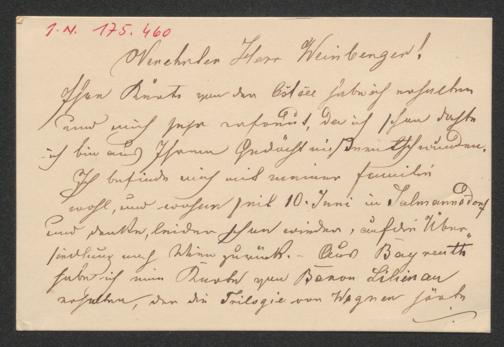 I.N. 175.460
Verehrter Herr Weinberger!
Ihre Karte von der Ostsee habe ich erhalten
und mich sehr erfreut, da ich schon dachte
ich bin aus Ihrem Gedächtniss entschwunden.
Ich befinde mich mit meiner Familie
wohl, und wohne seit 10. Juni in Salmannsdorf
und denke, leider schon wieder, auf die Über-
siedlung nach Wien zurück. – Aus Bayreuth
habe ich eine Karte von Baron Lilienau
erhalten, der die Trilogie von Wagner hörte